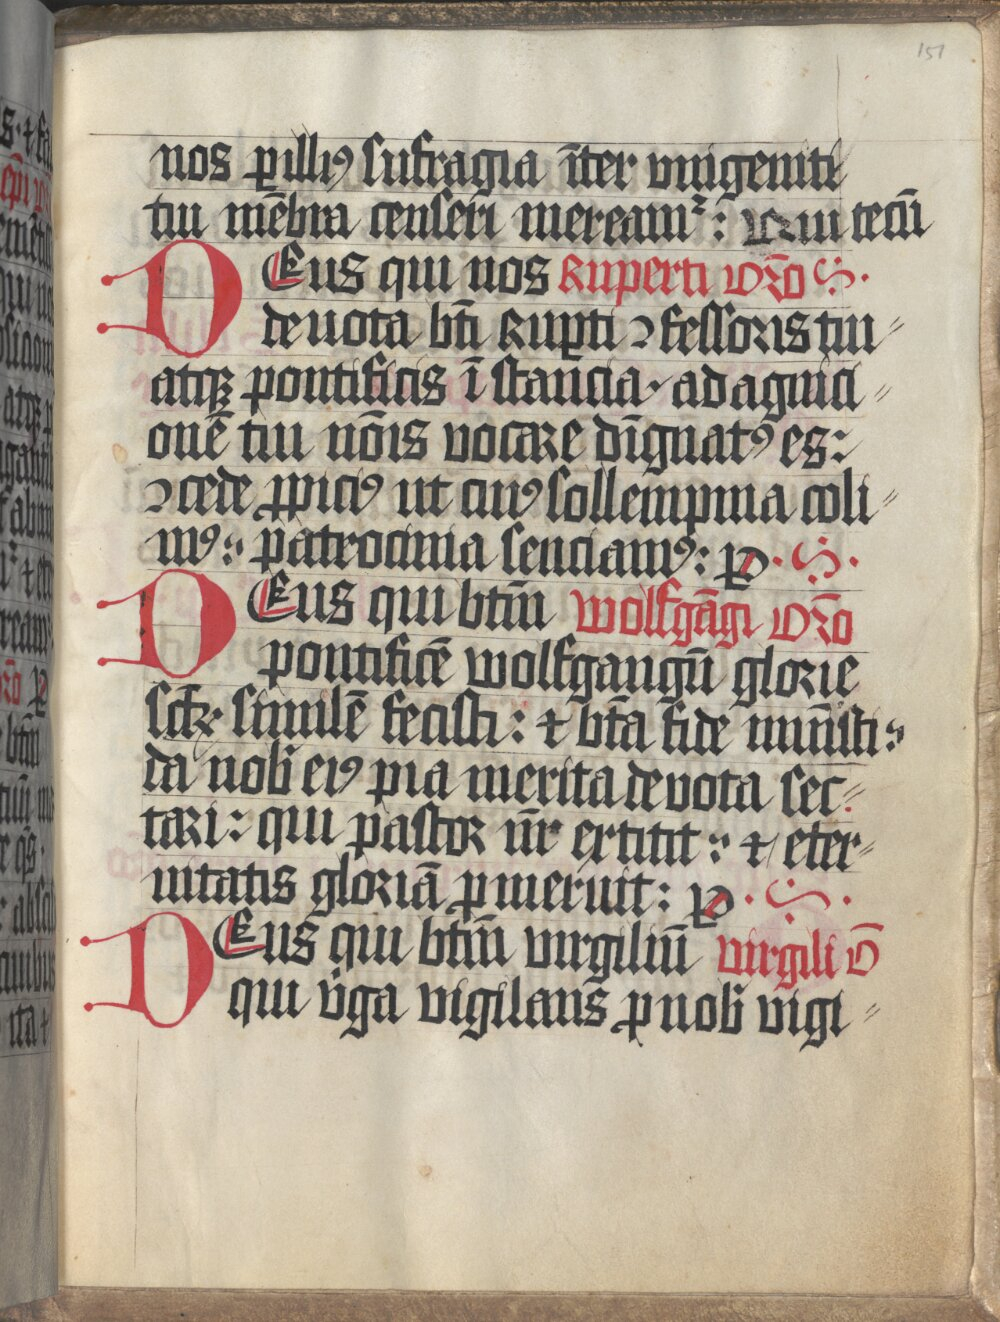 151
nos ꝑ illiꝰ sufragia īter vnigeniti
tui mēbra censeri mereamꝛ: Qui tecū
DEus qui nos Ruperti oro S.
deuota bti Ruꝑti ↄfessoris tui
atqꝫ pontificis īstancia ad agnici
onē tui nōis vocare dignatꝰ es:
ↄcede ꝓpiciꝰ ut cuiꝰ sollempnia coli
mꝰ: patrocinia senciamꝰ: ꝑ. S.
DEus qui btm̄ wolfgāgi oro
pontificē wolfgangū glorie
similē fecisti: ⁊ bta fide muisti:
da nob eiꝰ pia merita deuota sec
tari: qui pastor nr̄ extitit: ⁊ eter
nitatis gloriā ꝓmeruit: ꝑ. S.
DEus qui btm̄ virgiliū virgili ō
qui v̄ga vigilans ꝓ nob vigi